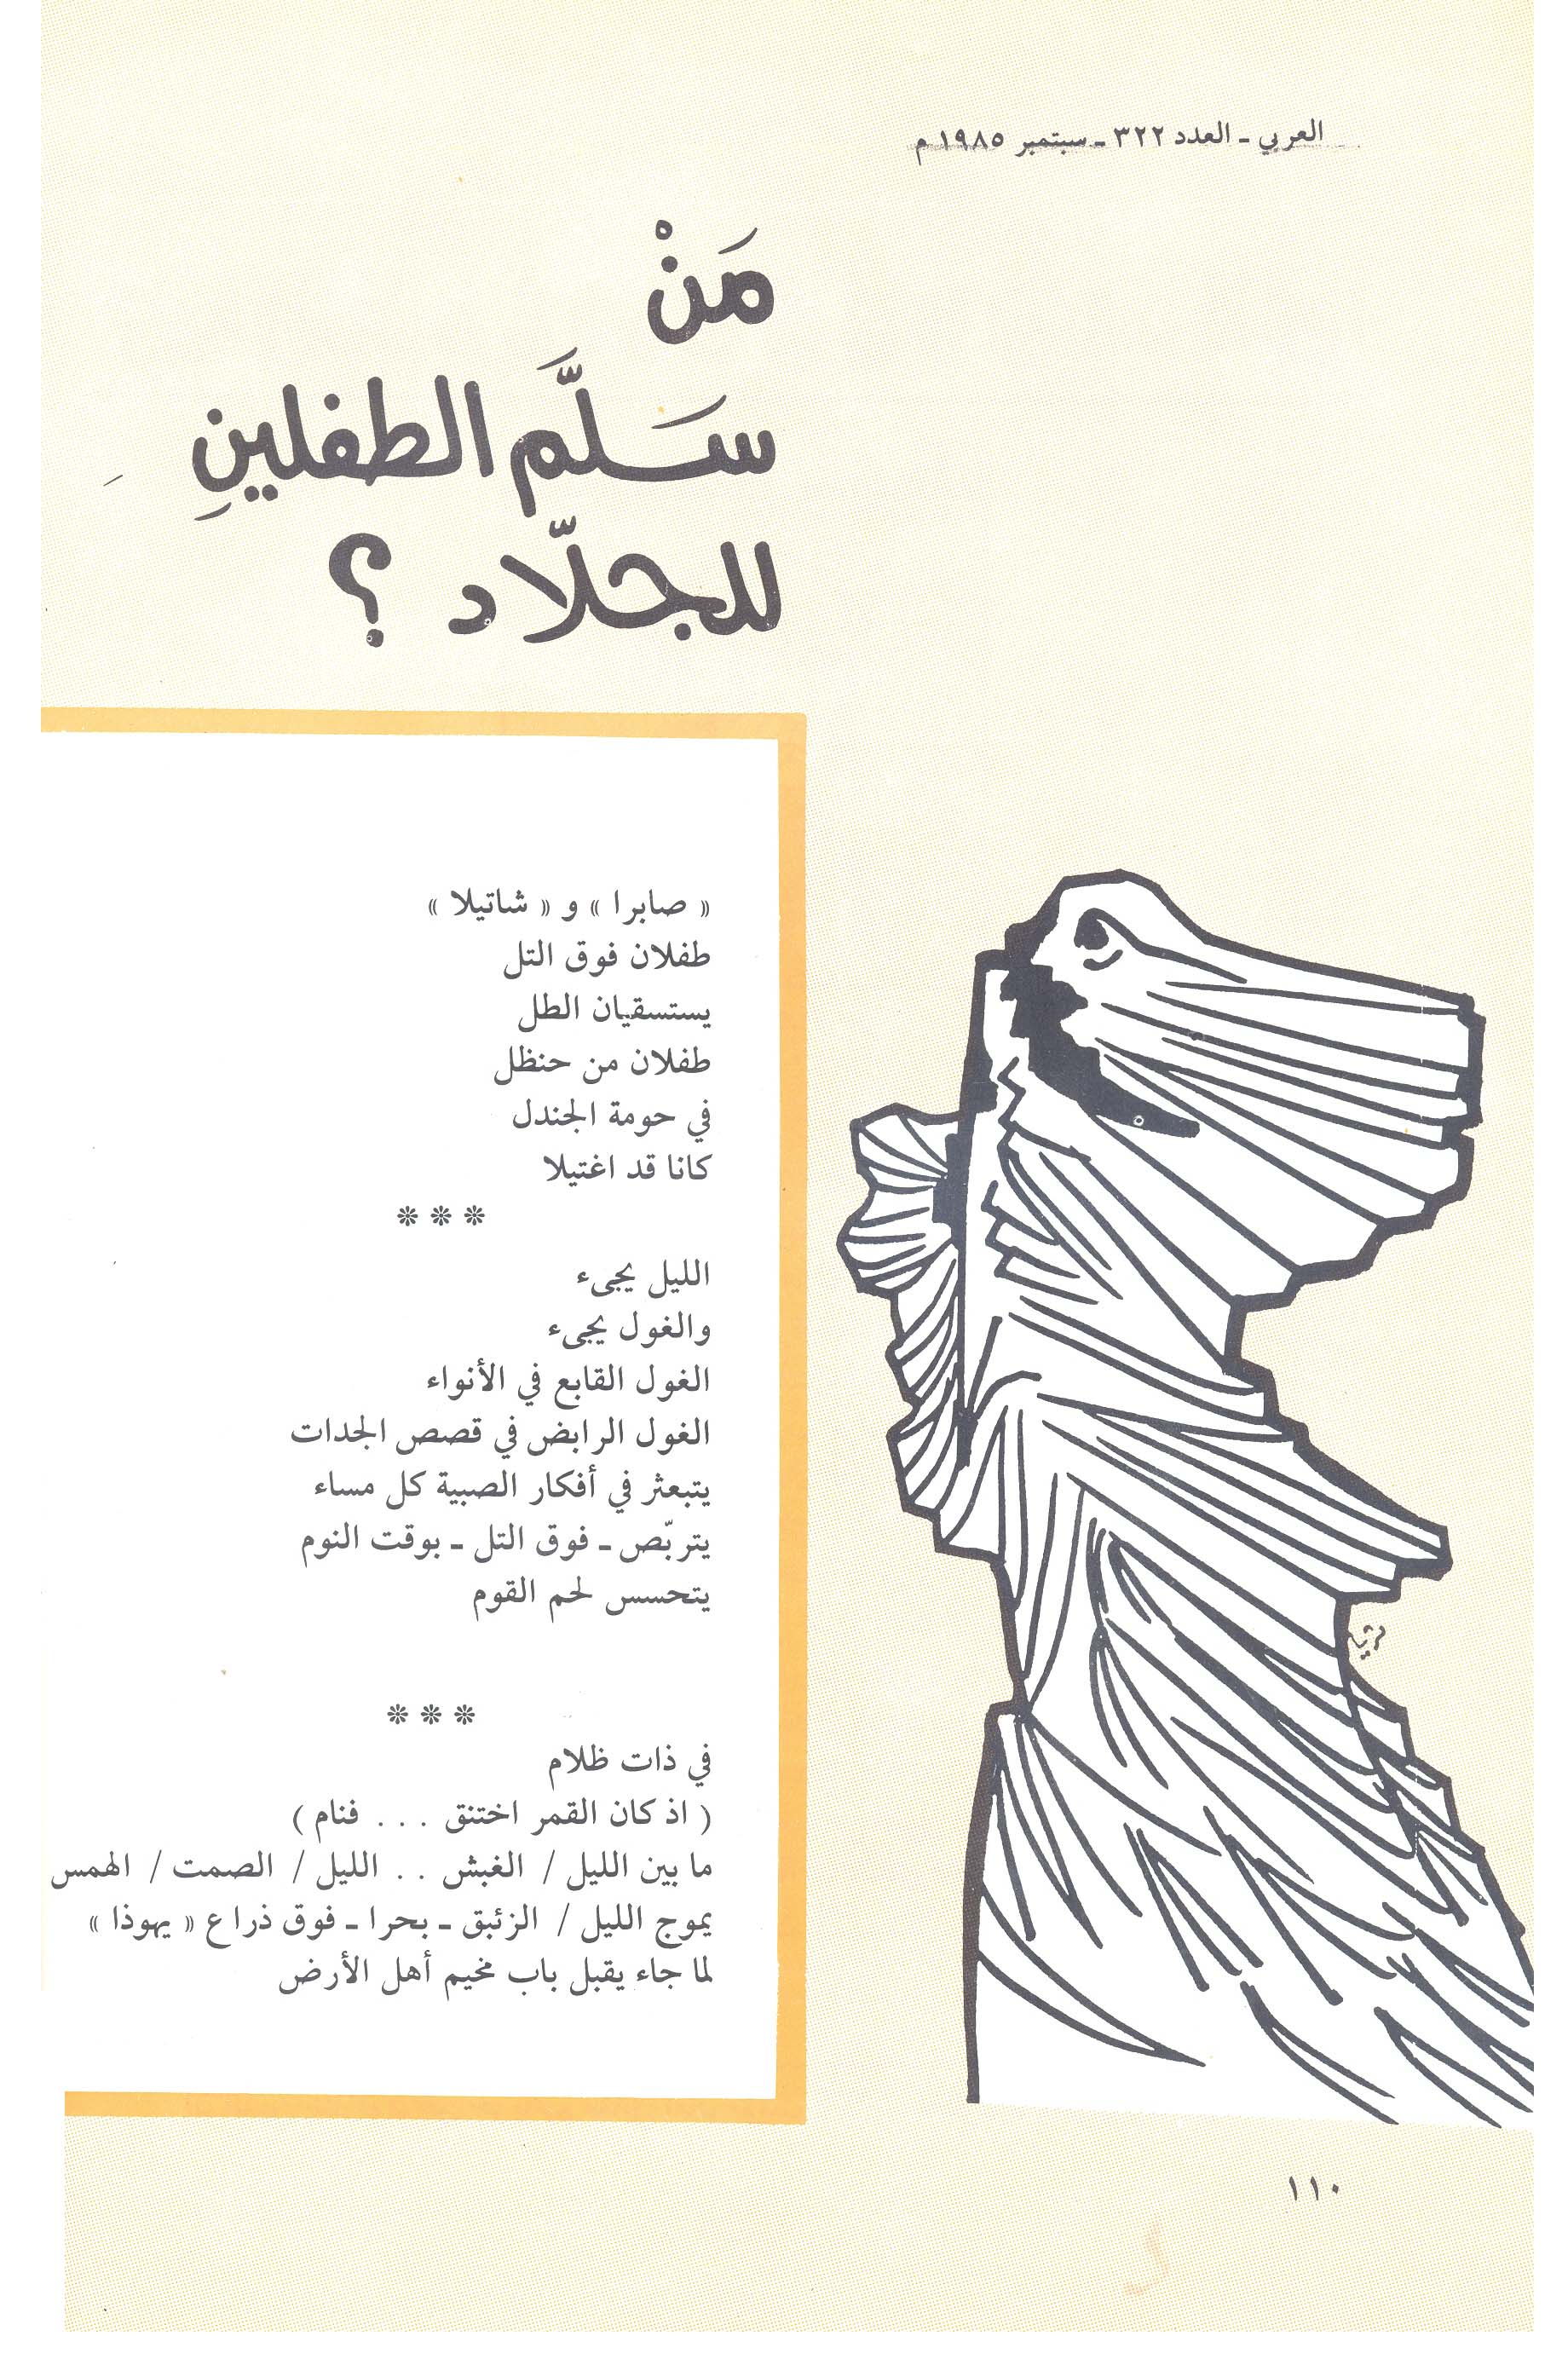 العربي ـ العدد ٣٢٢ ـ سبتمبر ١٩٨٥ م
مَنْ
سَلَّم الطفلينِ
للجلّاد ؟
« صابرا » و « شاتيلا »
طفلان فوق التل
يستسقيان الطل
طفلان من حنظل
في حومة الجندل
كانا قد اغتيلا
❊ ❊ ❊
الليل يجىء
والغول يجىء
الغول القابع في الأنواء
الغول الرابض في قصص الجدات
يتبعثر في أفكار الصبية كل مساء
يتربّص ـ فوق التل ـ بوقت النوم
يتحسس لحم القوم
❊ ❊ ❊
في ذات ظلام
( اذ كان القمر اختنق . . . فنام )
ما بين الليل / الغبش . . الليل / الصمت / الهمس
يموج الليل / الزئبق ـ بحرا ـ فوق ذراع « يهوذا »
لما جاء يقبل باب مخيم أهل الأرض
١١٠